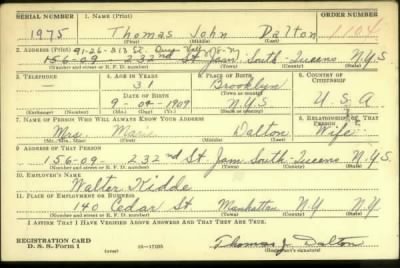 SERIAL NUMBER 1. NAME (Print) ORDER NUMBER
1975 Thomas John Dalton 1104
(First) (Middle) (Last)
2. ADDRESS (Print) 91-26-213 St.
156-09- 232nd St Jam. South-Queens N.Y.S
(Number and street or R. F. D. number) (Town) (County) (State)
3. TELEPHONE 4. AGE IN YEARS 5. PLACE OF BIRTH 6. COUNTRY OF CITIZENSHIP
— 31 Brooklyn
DATE OF BIRTH (Town or county)
9-04-1909 N.Y.S. U.S.A
(Exchange) (Number) (Mo.) (Day) (Yr.) (State or country)
7. NAME OF PERSON WHO WILL ALWAYS KNOW YOUR ADDRESS 8. RELATIONSHIP OF THAT PERSON
Mrs. Dalton Wife
(Mr., Mrs., Miss) (First) (Middle) (Last)
9. ADDRESS OF THAT PERSON
156-09- 232nd St. Jam South-Queens N.Y.S.
(Number and street or R. F. D. number) (Town) (County) (State)
10. EMPLOYER'S NAME
Walter Kidde
11. PLACE OF EMPLOYMENT OR BUSINESS
140 Cedar St Manhattan N.Y N.Y
(Number and street or R. F. D. number) (Town) (County) (State)
I AFFIRM THAT I HAVE VERIFIED ABOVE ANSWERS AND THAT THEY ARE TRUE.
REGISTRATION CARD
D. S. S. Form 1 16—17105 Thomas J. Dalton
(Registrant's signature)